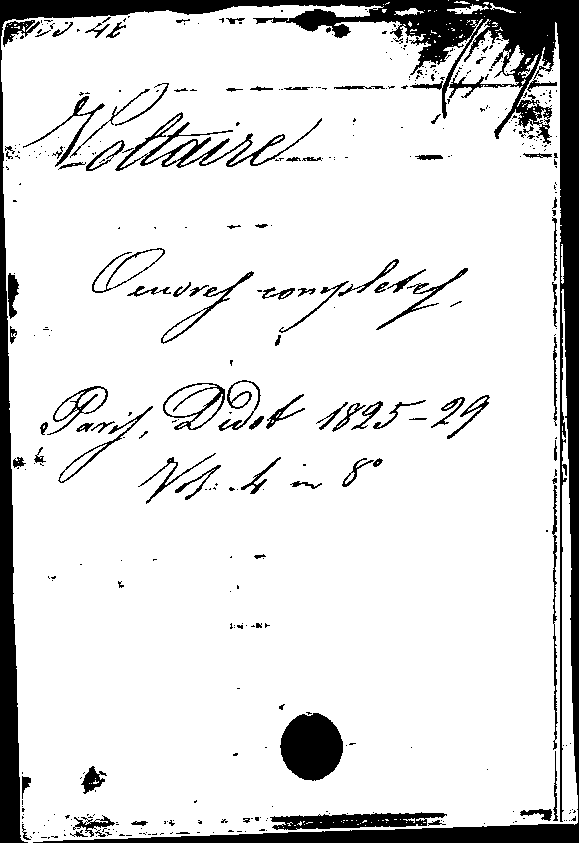 Voltaire
Oeuvres completes.
Paris, Didot 1825-29
Vol. 4 in 8°